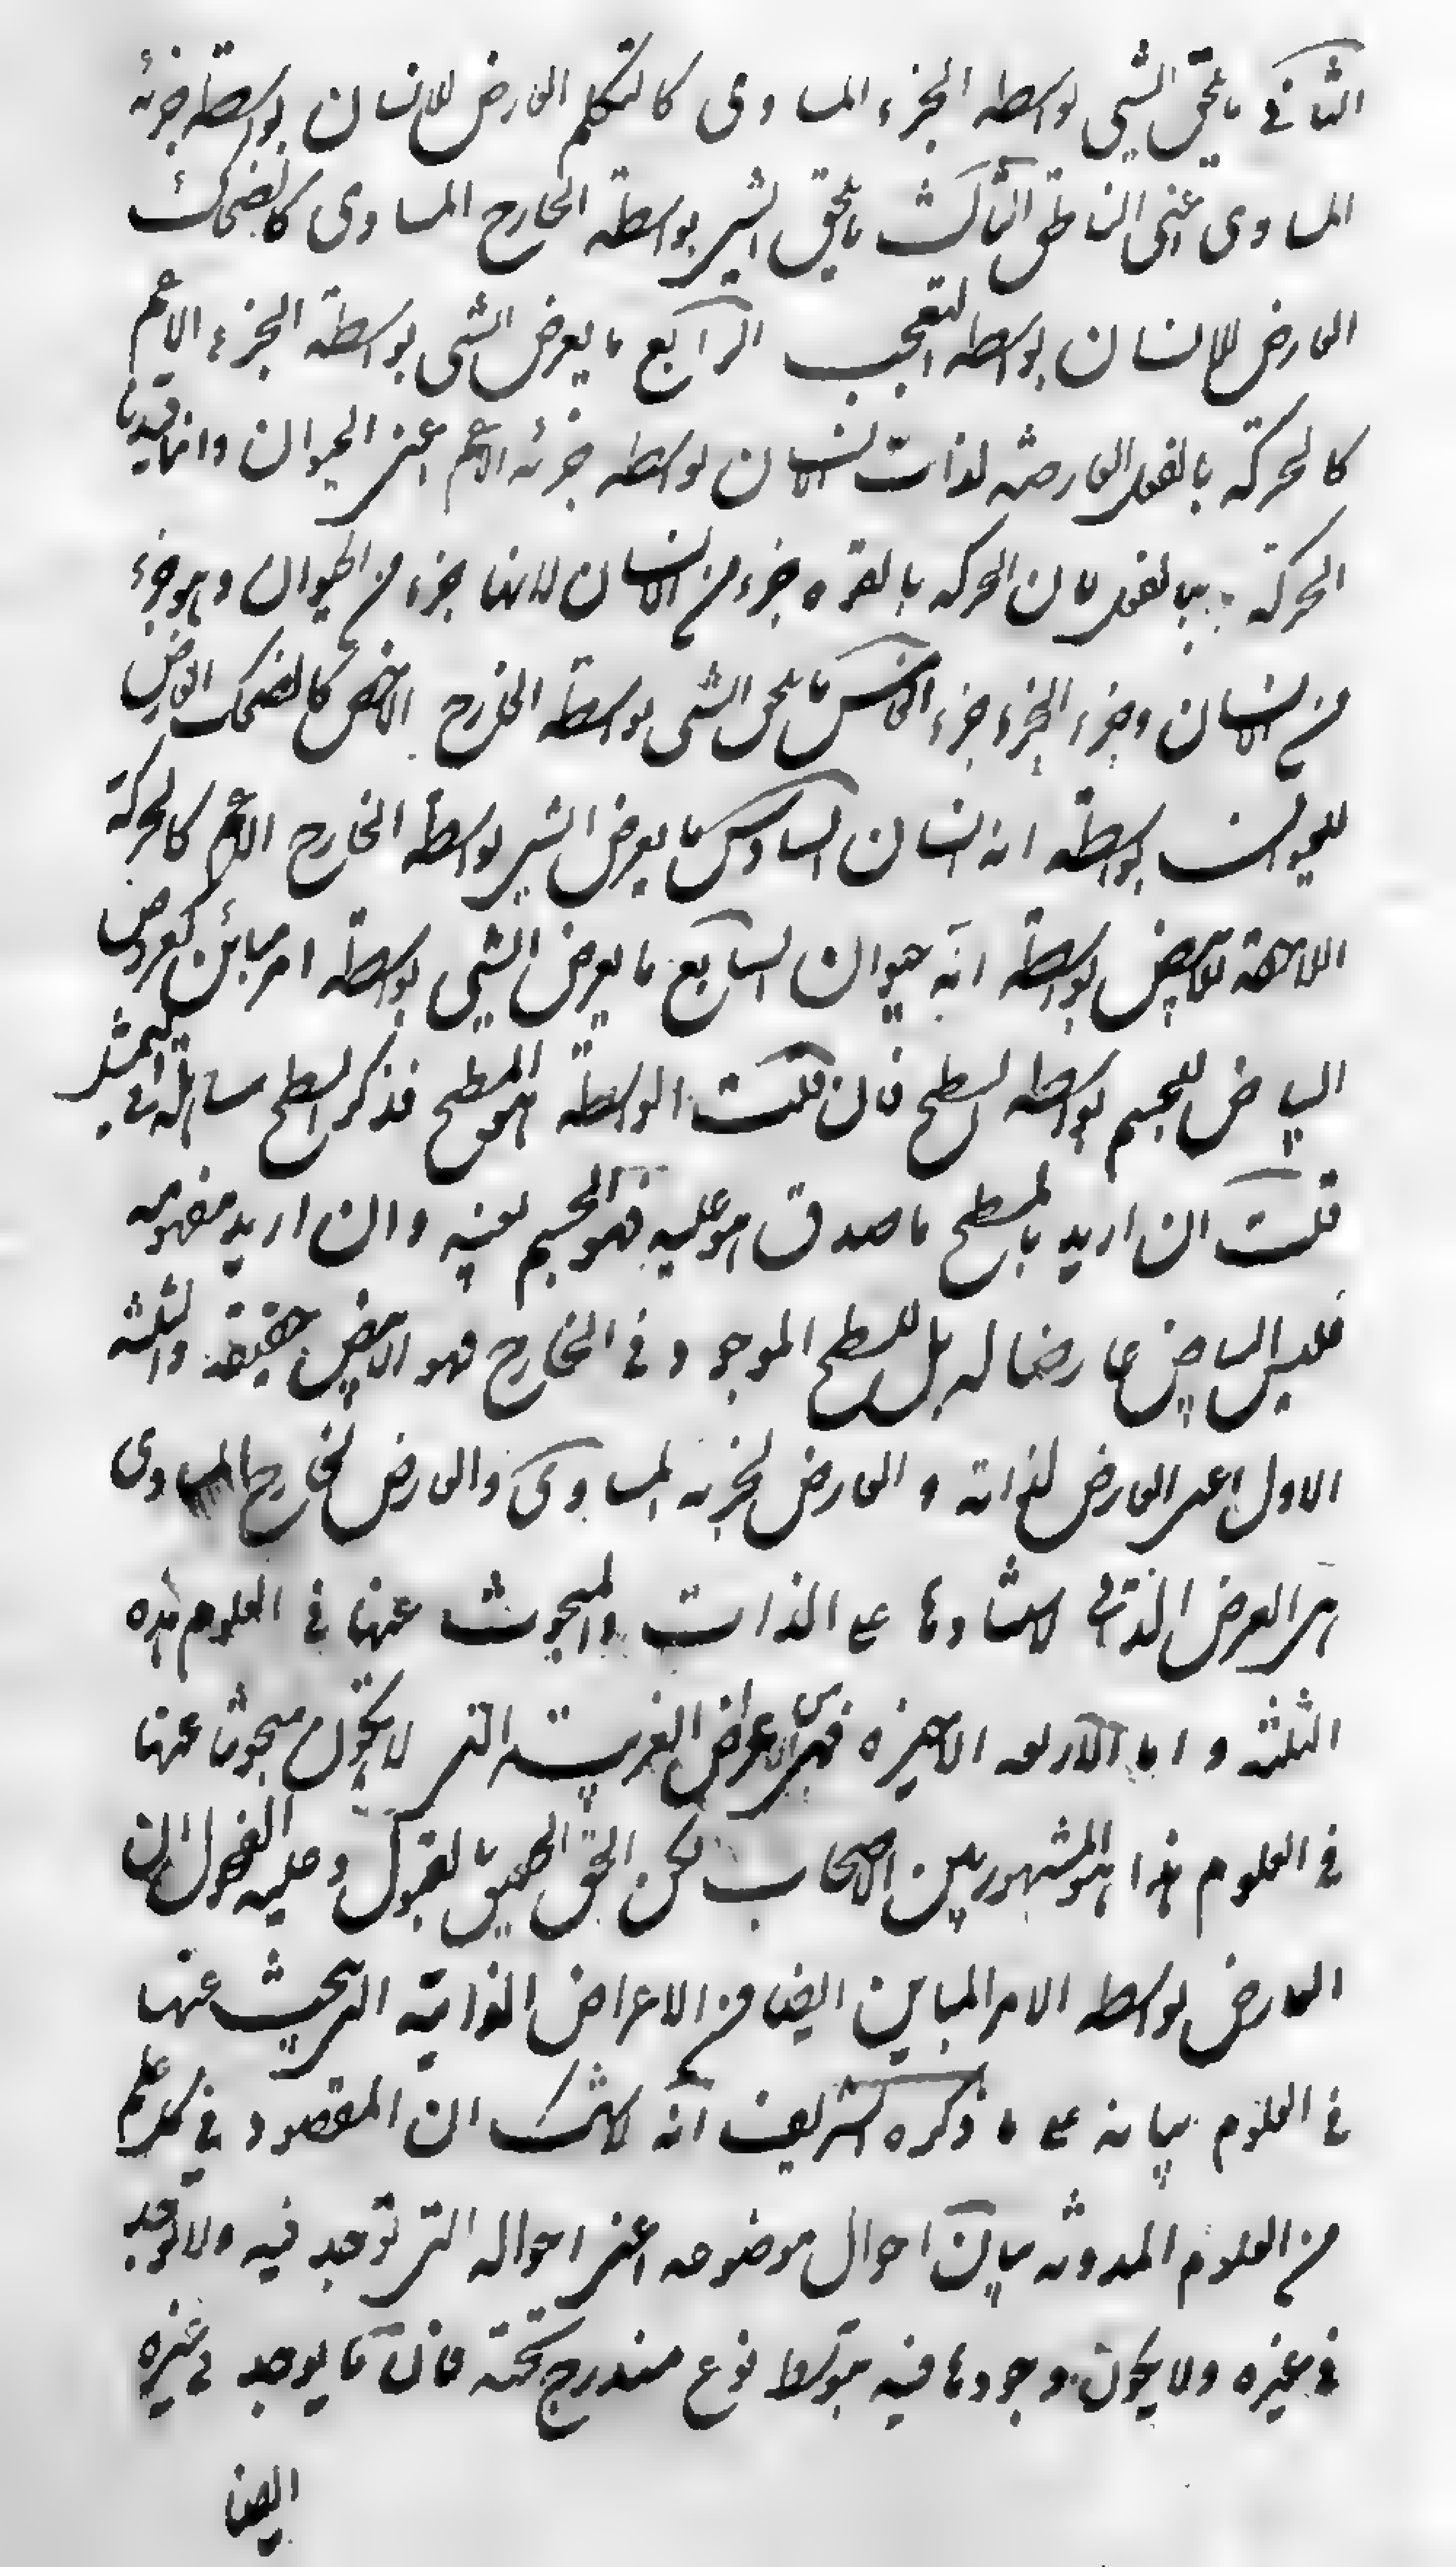 الثانى ما يلحق الشئ بواسطة الجزء المساوى كالتكلم العارض للانسان بواسطة جزئه
المساوى اعنى الناطق الثالث ما يلحق الشئ بواسطة الخارج المساوى كالضحك
العارض للانسان بواسطة التعجب الرابع ما يعرض الشئ بواسطة الجزء الاعم
كالحركة بالفعل العارضة لذات الانسان بواسطة جزئه الاعم اعنى الحيوان وانما قيدنا
الحركة بالفعل لان الحركة بالقوه جزء من الانسان لانها جزء من الحيوان وهو جزء
من الانسان وجزء الجزء جزء الخامس ما يلحق الشئ بواسطة الخارج الاخص كالضحك العارض
للحيوان بواسطة انه انسان السادس ما يعرض الشئ بواسطة الخارج الاعم كالحركة
اللاحقة للابيض بواسطة انه حيوان السابع ما يعرض الشئ بواسطة امر مبائن كعروض
البياض للجسم بواسطة السطح فان قلت الواسطة هو المسطح فذكر السطح مساهلة فى التمثيل
قلت ان اريد بالمسطح ما صدق هو عليه فهو الجسم بعينه وان اريد مفهومه
فليس البياض عارضا له بل للسطح الموجود فى الخارج فهو الابيض حقيقة والثلثة
الاول اعنى العارض لذاته والعارض لجزئه المساوى والعارض لخارج المساوى
هى العرض الذاتى لاستنادها على الذات والمبحوث عنها فى العلوم هذه
الثلثة واما الاربعه الاخيره فهى الاعراض الغريبة التى لا يكون مبحوثا عنها
فى العلوم هذا هو المشهور بين الاصحاب لكن الحق الحقيق بالقبول وعليه الفحول ان
العارض بواسطه الامر المباين ايضا من الاعراض الذاتية التى يبحث عنها
فى العلوم بيانه على ما ذكره الشريف انه لا شك ان المقصود فى كل علم
من العلوم المدونه بيان احوال موضوعه اعنى احواله التى توجد فيه ولا توجد
فى غيره ولا يكون وجودها فيه بتوسط نوع مندرج تحته فان ما يوجد فى غيره
ايضا